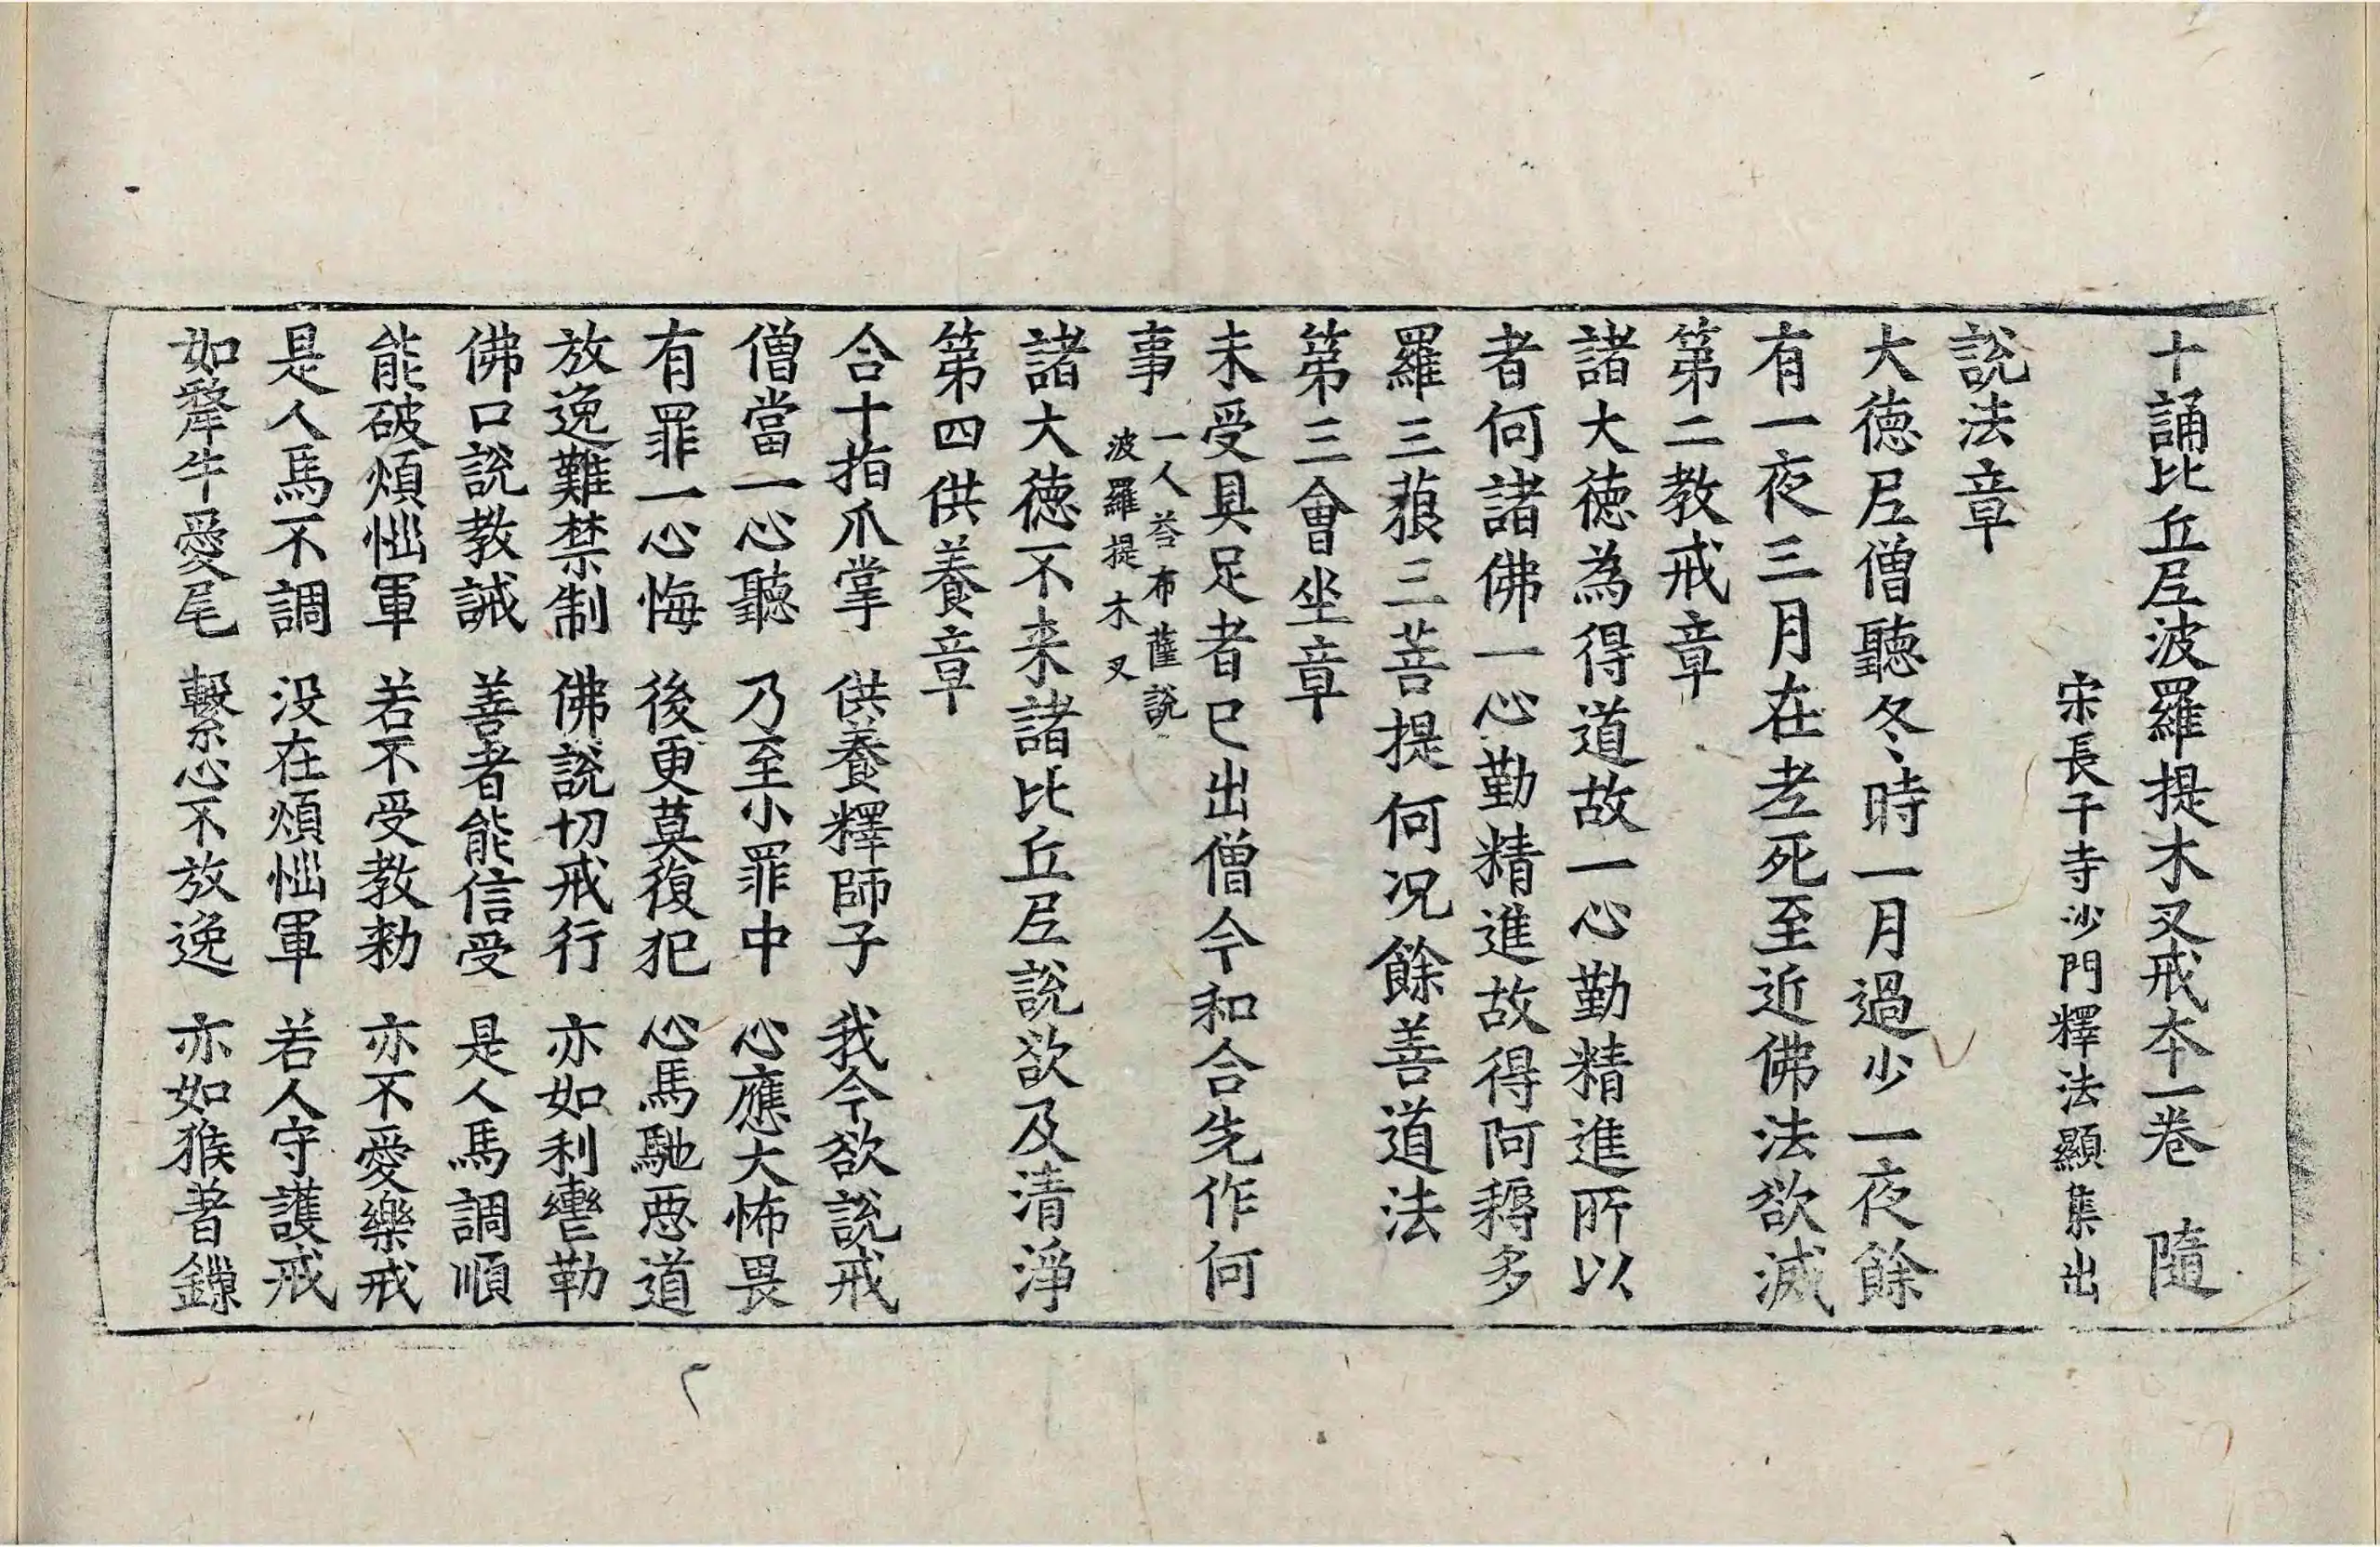 十誦比丘尼波羅提木叉戒本一卷　隨
宋長干寺沙門釋法顯集出
說法章
大德尼僧聽冬時一月過少一夜餘
有一夜三月在老死至近佛法欲滅
第二教戒章
諸大德為得道故一心勤精進所以
者何諸佛一心勤精進故得阿耨多
羅三藐三菩提何况餘善道法
第三會坐章
未受具足者已出僧今和合先作何
事
一人荅布薩說
波羅提木叉
諸大德不来諸比丘尼說欲及清淨
第四供養章
合十指爪掌　供養釋師子　我今欲說戒
僧當一心聽　乃至小罪中　心應大怖畏
有罪一心悔　後更莫復犯　心馬馳惡道
放逸難禁制　佛說切戒行　亦如利轡勒
佛口說教誡　善者能信受　是人馬調順
能破煩惱軍　若不受教勑　亦不愛樂戒
是人馬不調　没在煩惱軍　若人守護戒
如犛牛愛尾　繫心不放逸　亦如猴著鏁